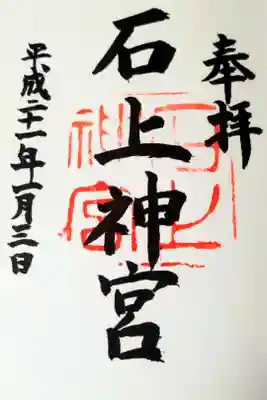 奉拝
石上神宮
平成二十一年一月三日